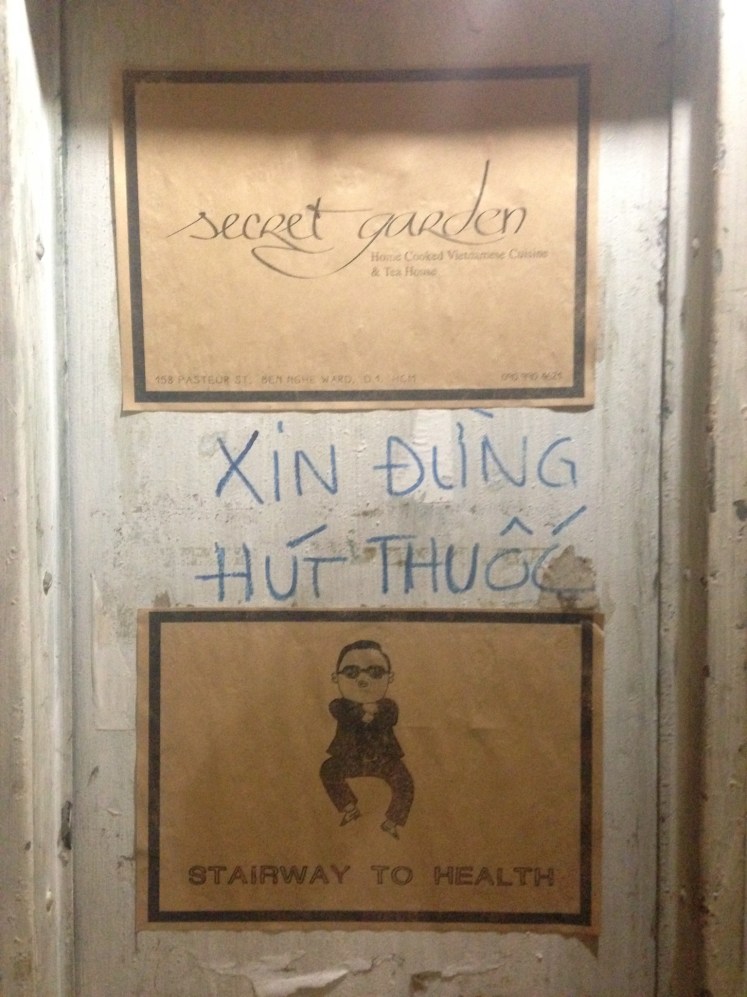 secret garden
Home Cooked Vietnamese Cuisine
& Tea House
158 PASTEUR ST, BEN NGHE WARD, D.1 HCM
XIN ĐỪNG
HÚT THUỐC
STAIRWAY TO HEALTH